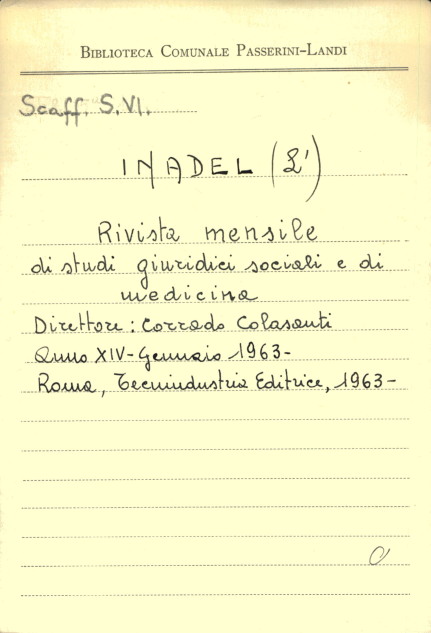 BIBLIOTECA COMUNALE PASSERINI-LANDI
Scaff. S.VI.
INADEL (L')
Rivista mensile
di studi giuridici sociali e di
medicina
Direttore: Corrado Colasanti
Anno XIV - Gennaio 1963-
Roma, Tecnindustria Editrice, 1963-